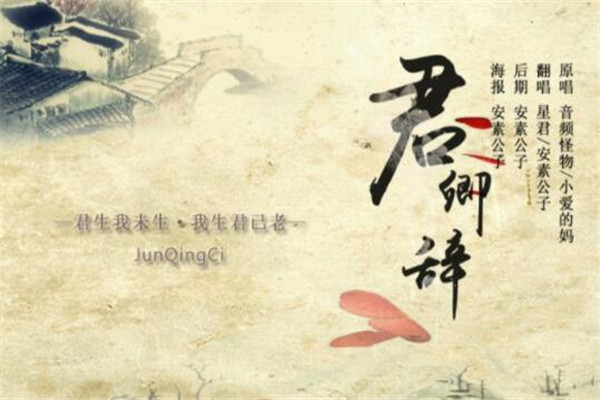 君卿辞
原唱 音频怪物/小爱的妈
翻唱 星君/安素公子
后期 安素公子
海报 安素公子
—君生我未生·我生君已老—
JunQingCi